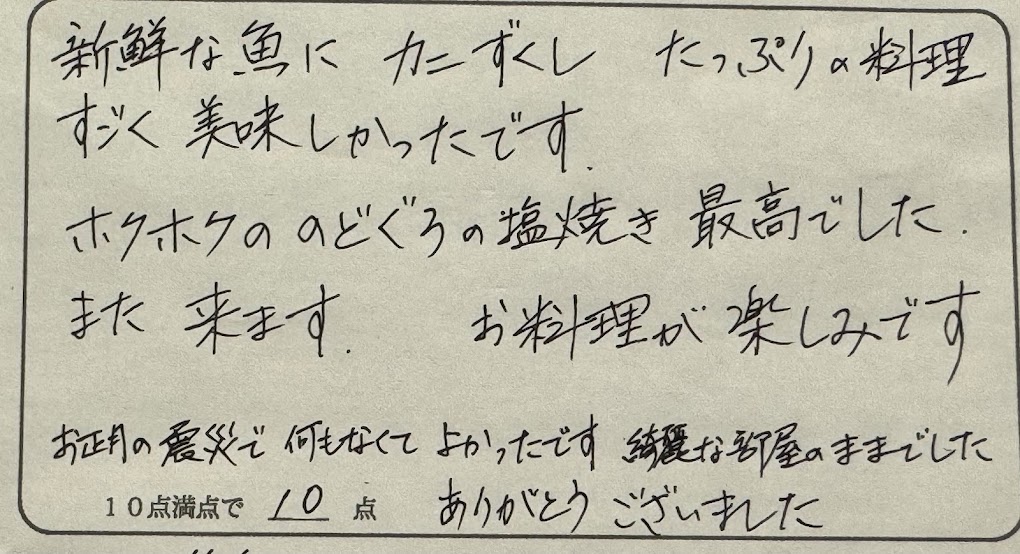 新鮮な魚に カニずくし たっぷりの料理
すごく 美味しかったです.
ホクホクの のどぐろの塩焼き 最高でした.
また 来ます. お料理が 楽しみです
お正月の震災で 何もなくて よかったです 綺麗な部屋のままでした
10点満点で 10 点 ありがとう ございました